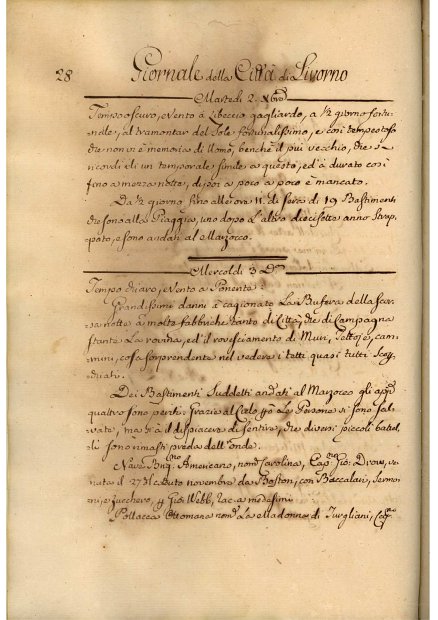 28 Giornale della Città di Livorno
Martedì 2. Xbre
Tempo oscuro, e vento à Libeccio gagliardo, a ½ giorno fortu-
nale, al tramontar del Sole fortunalissimo, e così tempestoso
che non vi è memoria di Uomo, benchè il più vecchio, che si
ricordi di un temporale simile a questo, ed à durato così
fino a mezza notte, di poi a poco a poco è mancato.
Da ½ giorno fino alle ore 11. di sera di 19 Bastimenti
che sono alla Piaggia, uno dopo l'altro diecisette anno strap-
pato, e sono andati al Marzocco.
Mercoldì 3 Do
Tempo chiaro, e vento a Ponente:
Grandissimi danni à cagionato La Bufera della scor-
sa notte à molte fabbriche tanto di Città, che di Campagna
stante La rovina, ed il rovesciamento di Muri, Tettoje, cam-
mini, cosa sorprendente nel vedere i tetti quasi tutti
Dei Bastimenti Suddetti andati al Marzocco gli
quattro sono persi. Grazie al Cielo Le Persone si sono sal-
vate, ma si à il dispiacere di sentire, che diversi piccoli battel-
li sono rimasti preda dell'onde.
Nave Americano, nomta Carolina, Capn Gio: Drow, ve-
nuta il 27 31 Caduto novembre da Boston, con Baccalari,
e zucchero, Gio: Webb, Rac. a medesimi
Pollacca Ottomana nomta La Madonna di Turgliani,